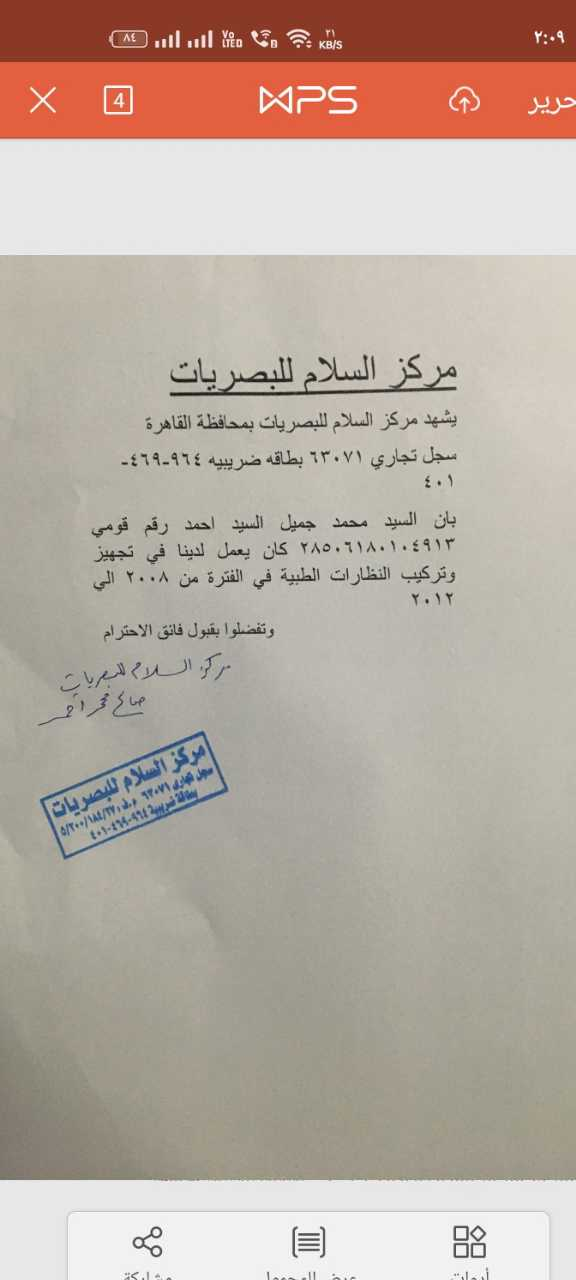 ٨٤
Vo LTE
٢١ KB/S
٢:٠٩
4
WPS
مركز السلام للبصريات
يشهد مركز السلام للبصريات بمحافظة القاهرة
سجل تجاري ٦٣٠٧١ بطاقه ضريبيه ٩٦٤-٤٦٩-
٤٠١
بان السيد محمد جميل السيد احمد رقم قومي
٢٨٥٠٦١٨٠١٠٤٩١٣ كان يعمل لدينا في تجهيز
وتركيب النظارات الطبية في الفترة من ٢٠٠٨ الي
٢٠١٢
وتفضلوا بقبول فائق الاحترام
مركز السلام للبصريات
مركز السلام للبصريات
سجل تجارى ٦٣٠٧١ م.ف ٥/٢٠٠/١٨٤/٢٧٠
بطاقة ضريبية ٩٦٤-٤٦٩-٤٠١